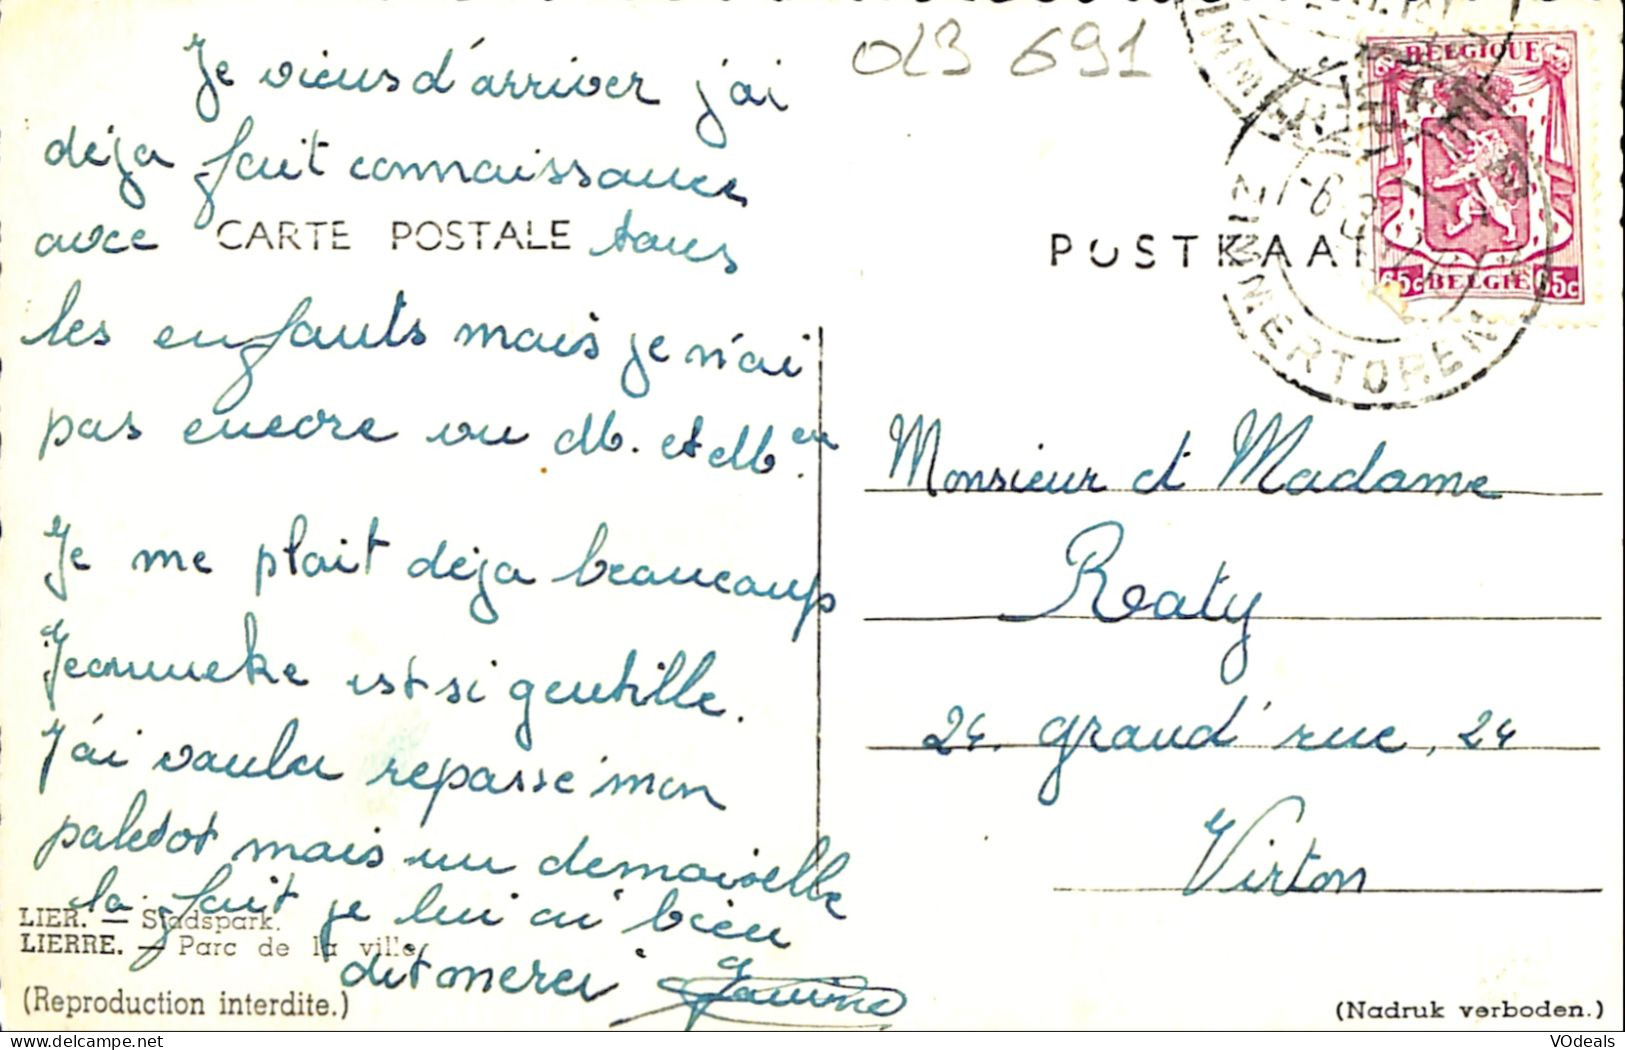 OL3 691
BELGIQUE
65c BELGIË 65c
ZIMMERTOREN
Je viens d'arriver j'ai
déja fait connaissance
avec CARTE POSTALE tous
POSTKAAR
les enfants mais je n'ai
pas encore vu M. et M.
Monsieur et Madame
Je me plait déja beaucoup
Roaty
Jeanneke est si gentille.
24. grand' rue, 24
J'ai voulu repasse mon
Virton
paletot mais un demoiselle
la fait je lui ai bien
dit merci Janine
LIER. — Stadspark.
LIERRE. — Parc de la ville.
(Reproduction interdite.)
(Nadruk verboden.)
VOdeals